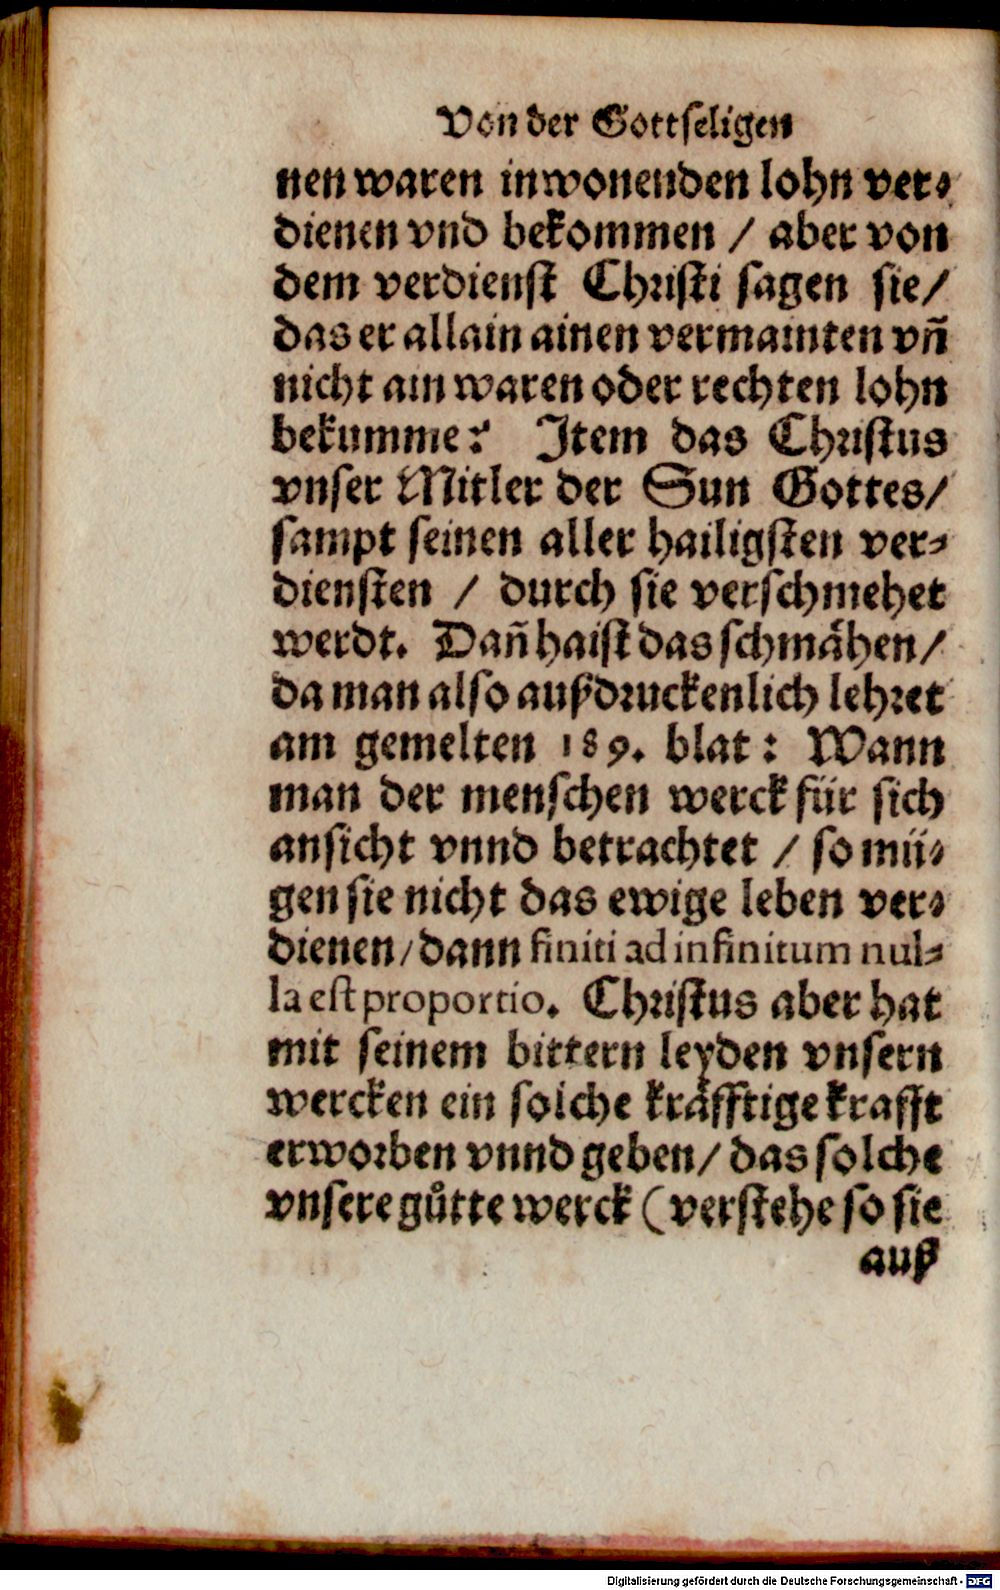 Von der Gottseligen
nen waren inwonenden lohn ver⸗
dienen vnd bekommen / aber von
dem verdienst Christi sagen sie/
das er allain ainen vermainten vñ
nicht ain waren oder rechten lohn
bekumme? Item das Christus
vnser Mitler der Sun Gottes/
sampt seinen aller hailigsten ver⸗
diensten / durch sie verschmehet
werdt. Dañ haist das schmähen/
da man also außdruckenlich lehret
am gemelten 189. blat: Wann
man der menschen werck für sich
ansicht vnnd betrachtet / so mü⸗
gen sie nicht das ewige leben ver⸗
dienen/dann finiti ad infinitum nul⸗
la est proportio. Christus aber hat
mit seinem bittern leyden vnsern
wercken ein solche kräfftige krafft
erworben vnnd geben/ das solche
vnsere gůtte werck (verstehe so sie
auß
Digitalisierung gefördert durch die Deutsche Forschungsgemeinschaft - DFG